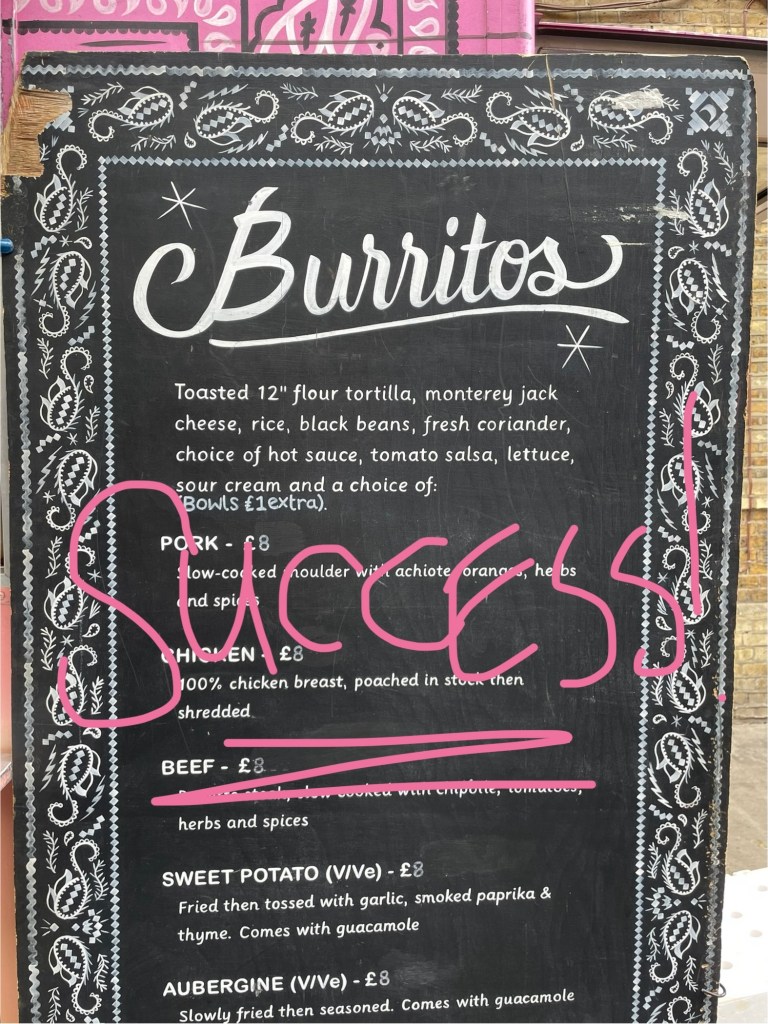 Burritos
Toasted 12" flour tortilla, monterey jack
cheese, rice, black beans, fresh coriander,
choice of hot sauce, tomato salsa, lettuce,
sour cream and a choice of:
(Bowls £1 extra).
PORK - £8
Slow-cooked shoulder with achiote, oranges, herbs
and spices
SUCCESS!
CHICKEN - £8
100% chicken breast, poached in stock then
shredded
BEEF - £8
steak, slow cooked with chipotle, tomatoes,
herbs and spices
SWEET POTATO (V/Ve) - £8
Fried then tossed with garlic, smoked paprika &
thyme. Comes with guacamole
AUBERGINE (V/Ve) - £8
Slowly fried then seasoned. Comes with guacamole